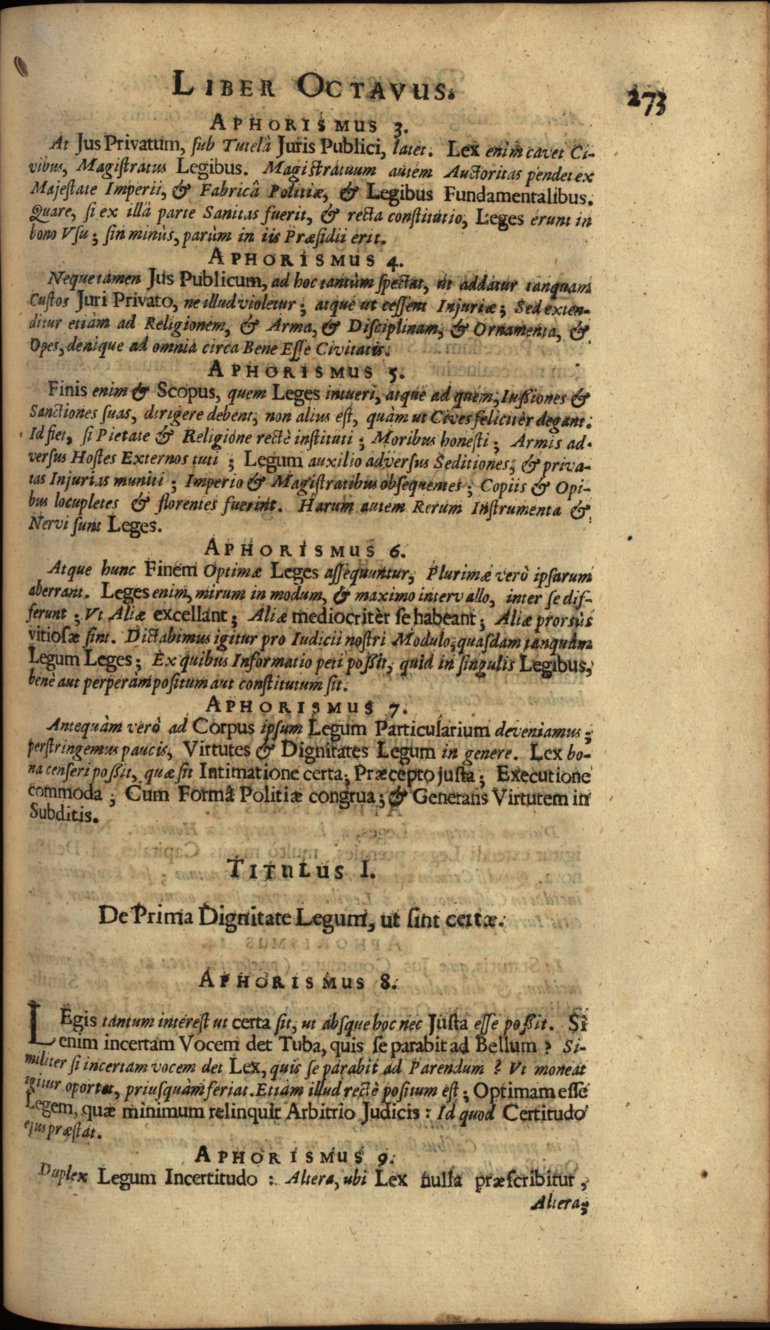 LIBER OCTAVUS. 273
APHORISMUS 3.
At Jus Privatum, sub Tutelâ Juris Publici, latet. Lex enim cavet Ci-
vibus, Magistratus Legibus. Magistratuum autem Auctoritas pendet ex
Majestate Imperii, & Fabricâ Politiæ, & Legibus Fundamentalibus.
Quare, si ex illâ parte Sanitas fuerit, & recta constitutio, Leges erunt in
bono Vsu; sin minùs, parùm in iis Præsidii erit.
APHORISMUS 4.
Neque tamen Jus Publicum, ad hoc tantùm spectat, ut addatur tanquam
Custos Juri Privato, ne illud violetur; atque ut cessent Injuriæ; Sed exten-
ditur etiàm ad Religionem, & Arma, & Disciplinam, & Ornamenta, &
Opes, denique ad omnia circa Bene Esse Civitatis.
APHORISMUS 5.
Finis enim & Scopus, quem Leges intueri, atque ad quem, Iussiones &
Sanctiones suas, dirigere debent, non alius est, quàm ut Cives felicitèr degant.
Id fiet, si Pietate & Religione rectè instituti; Moribus honesti; Armis ad-
versus Hostes Externos tuti; Legum auxilio adversus Seditiones, & priva-
tas Injurias muniti; Imperio & Magistratibus obsequentes; Copiis & Opi-
bus locupletes & florentes fuerint. Harum autem Rerum Instrumenta &
Nervi sunt Leges.
APHORISMUS 6.
Atque hunc Finem Optimæ Leges assequuntur, Plurimæ verò ipsarum
aberrant. Leges enim, mirum in modum, & maximo intervallo, inter se dif-
ferunt; Vt Aliæ excellant; Aliæ mediocritèr se habeant; Aliæ prorsùs
vitiosæ sint. Dictabimus igitur pro Iudicii nostri Modulo, quasdam tanquàm
Legum Leges; Ex quibus Informatio peti possit, quid in singulis Legibus,
benè aut perperàm positum aut constitutum sit.
APHORISMUS 7.
Antequàm verò ad Corpus ipsum Legum Particularium deveniamus;
perstringemus paucis, Virtutes & Dignitates Legum in genere. Lex bo-
na censeri possit, quæ sit Intimatione certa; Præcepto justa; Executione
commoda; Cum Formâ Politiæ congrua; & Generans Virtutem in
Subditis.
TITULUS I.
De Prima Dignitate Legum, ut sint certæ.
APHORISMUS 8.
LEgis tantum interest ut certa sit, ut absque hoc nec Justa esse possit. Si
enim incertam Vocem det Tuba, quis se parabit ad Bellum? Si-
militer si incertam vocem det Lex, quis se parabit ad Parendum? Vt moneat
igitur oportet, priusquàm feriat. Etiàm illud rectè positum est; Optimam esse
Legem, quæ minimum relinquit Arbitrio Judicis: Id quod Certitudo
ejus præstat.
APHORISMUS 9.
Duplex Legum Incertitudo: Altera, ubi Lex nulla præscribitur,
Altera;